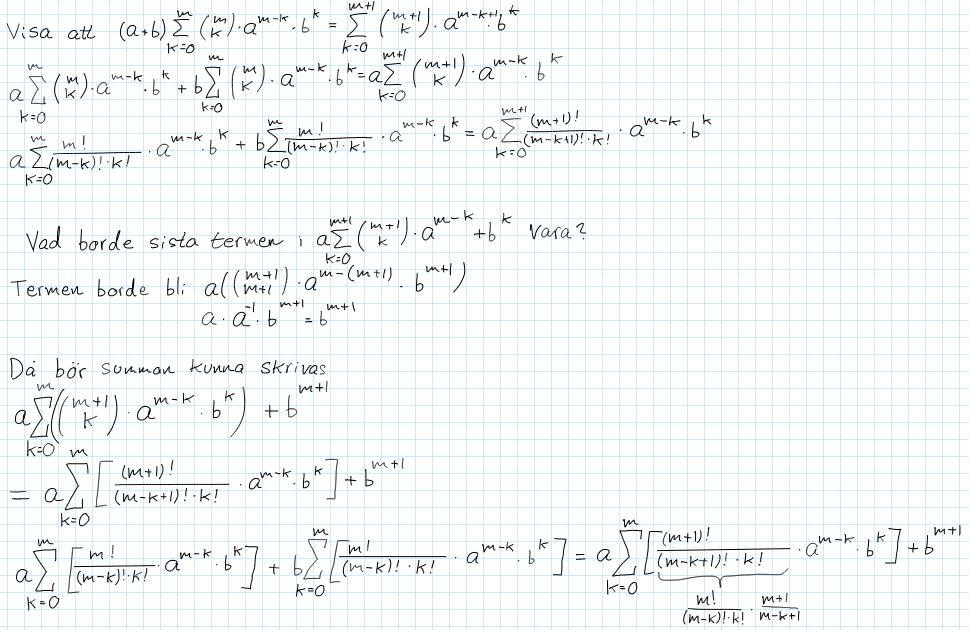 Visa att (a+b) ∑_{k=0}^{m} (m k)·a^{m-k}·b^k = ∑_{k=0}^{m+1} (m+1 k)·a^{m-k+1}·b^k
a ∑_{k=0}^{m} (m k)·a^{m-k}·b^k + b ∑_{k=0}^{m} (m k)·a^{m-k}·b^k = a ∑_{k=0}^{m+1} (m+1 k)·a^{m-k}·b^k
a ∑_{k=0}^{m} m!/((m-k)!·k!) · a^{m-k}·b^k + b ∑_{k=0}^{m} m!/((m-k)!·k!) · a^{m-k}·b^k = a ∑_{k=0}^{m+1} (m+1)!/((m-k+1)!·k!) · a^{m-k}·b^k
Vad borde sista termen i a ∑_{k=0}^{m+1} (m+1 k)·a^{m-k}+b^k vara?
Termen borde bli a((m+1 m+1)·a^{m-(m+1)}·b^{m+1})
a·a^{-1}·b^{m+1} = b^{m+1}
Då bör summan kunna skrivas
a ∑_{k=0}^{m} ((m+1 k)·a^{m-k}·b^k) + b^{m+1}
= a ∑_{k=0}^{m} [(m+1)!/((m-k+1)!·k!) · a^{m-k}·b^k] + b^{m+1}
a ∑_{k=0}^{m} [m!/((m-k)!·k!) · a^{m-k}·b^k] + b ∑_{k=0}^{m} [m!/((m-k)!·k!) · a^{m-k}·b^k] = a ∑_{k=0}^{m} [(m+1)!/((m-k+1)!·k!) · a^{m-k}·b^k] + b^{m+1}
m!/((m-k)!·k!) · (m+1)/(m-k+1)